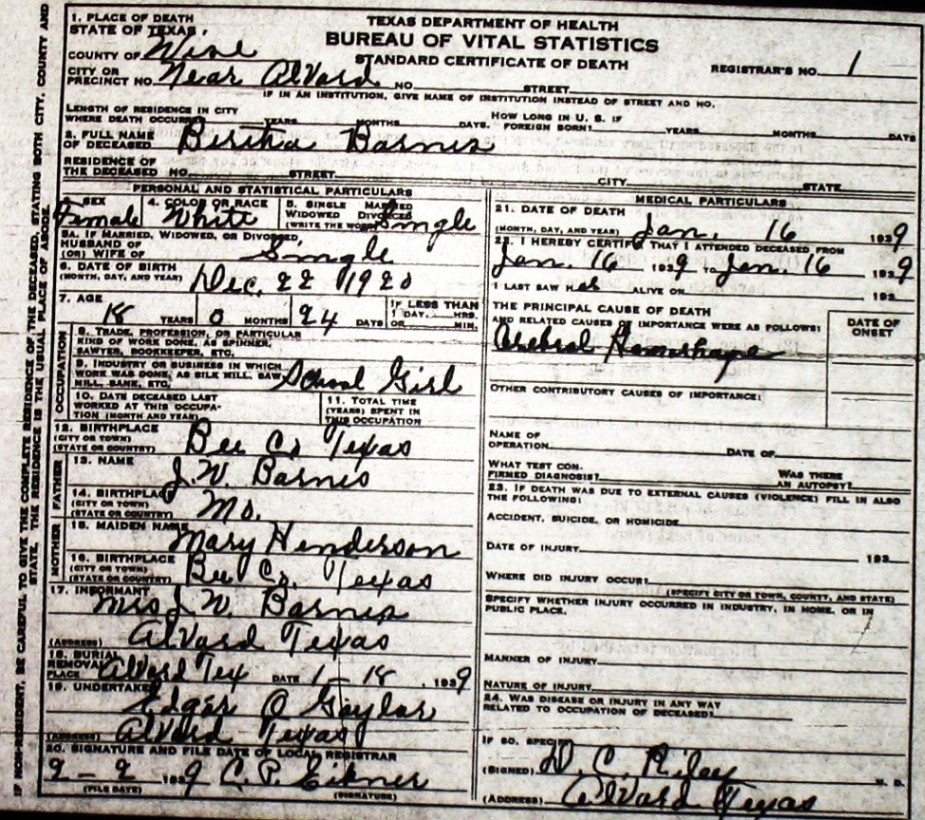 TEXAS DEPARTMENT OF HEALTH
BUREAU OF VITAL STATISTICS
STANDARD CERTIFICATE OF DEATH
REGISTRAR'S NO. 1
1. PLACE OF DEATH
STATE OF TEXAS,
COUNTY OF Wise
CITY OR
PRECINCT NO. Near Alvord NO. STREET
IF IN AN INSTITUTION, GIVE NAME OF INSTITUTION INSTEAD OF STREET AND NO.
LENGTH OF RESIDENCE IN CITY
WHERE DEATH OCCURRED YEARS MONTHS DAYS. HOW LONG IN U. S. IF
FOREIGN BORN? YEARS MONTHS DAYS
2. FULL NAME
OF DECEASED Bertha Barnes
RESIDENCE OF
THE DECEASED NO. STREET CITY STATE
PERSONAL AND STATISTICAL PARTICULARS
SEX Female 4. COLOR OR RACE White 5. SINGLE MARRIED
WIDOWED DIVORCED
(WRITE THE WORD) Single
5A. IF MARRIED, WIDOWED, OR DIVORCED,
HUSBAND OF
(OR) WIFE OF Single
6. DATE OF BIRTH
(MONTH, DAY, AND YEAR) Dec. 22 1920
7. AGE 18 YEARS 0 MONTHS 24 DAYS IF LESS THAN
1 DAY, HRS.
OR MIN.
OCCUPATION
8. TRADE, PROFESSION, OR PARTICULAR
KIND OF WORK DONE, AS SPINNER,
SAWYER, BOOKKEEPER, ETC.
9. INDUSTRY OR BUSINESS IN WHICH
WORK WAS DONE, AS SILK MILL, SAW
MILL, BANK, ETC. School Girl
10. DATE DECEASED LAST
WORKED AT THIS OCCUPA-
TION (MONTH AND YEAR)
11. TOTAL TIME
(YEARS) SPENT IN
THIS OCCUPATION
12. BIRTHPLACE
(CITY OR TOWN)
(STATE OR COUNTRY) Bee Co. Texas
FATHER
13. NAME J. W. Barnes
14. BIRTHPLACE
(CITY OR TOWN)
(STATE OR COUNTRY) Mo.
MOTHER
15. MAIDEN NAME Mary Henderson
16. BIRTHPLACE
(CITY OR TOWN)
(STATE OR COUNTRY) Bee Co. Texas
17. INFORMANT Mrs J. W. Barnes
(ADDRESS) Alvord Texas
18. BURIAL
REMOVAL
PLACE Alvord Tex DATE 1-18, 1939
19. UNDERTAKER Edgar O Gaylor
(ADDRESS) Alvord Texas
20. SIGNATURE AND FILE DATE OF LOCAL REGISTRAR
2-2 1939 C. P.
(FILE DATE) (SIGNATURE)
MEDICAL PARTICULARS
21. DATE OF DEATH
(MONTH, DAY, AND YEAR) Jan. 16 1939
22. I HEREBY CERTIFY THAT I ATTENDED DECEASED FROM
Jan. 16 1939 TO Jan. 16 1939
I LAST SAW HER ALIVE ON 193
THE PRINCIPAL CAUSE OF DEATH
AND RELATED CAUSES OF IMPORTANCE WERE AS FOLLOWS:
DATE OF
ONSET
Cerebral Hemorrhage
OTHER CONTRIBUTORY CAUSES OF IMPORTANCE:
NAME OF
OPERATION DATE OF
WHAT TEST CON-
FIRMED DIAGNOSIS? WAS THERE
AN AUTOPSY?
23. IF DEATH WAS DUE TO EXTERNAL CAUSES (VIOLENCE) FILL IN ALSO
THE FOLLOWING:
ACCIDENT, SUICIDE, OR HOMICIDE
DATE OF INJURY 193
WHERE DID INJURY OCCUR?
(SPECIFY CITY OR TOWN, COUNTY, AND STATE)
SPECIFY WHETHER INJURY OCCURRED IN INDUSTRY, IN HOME, OR IN
PUBLIC PLACE.
MANNER OF INJURY
NATURE OF INJURY
24. WAS DISEASE OR INJURY IN ANY WAY
RELATED TO OCCUPATION OF DECEASED?
IF SO, SPECIFY
(SIGNED) D. C. Riley M. D.
(ADDRESS) Alvord Texas
IF NON-RESIDENT, BE CAREFUL TO GIVE THE COMPLETE RESIDENCE OF THE DECEASED, STATING BOTH CITY, COUNTY AND
STATE. THE RESIDENCE IS THE USUAL PLACE OF ABODE.